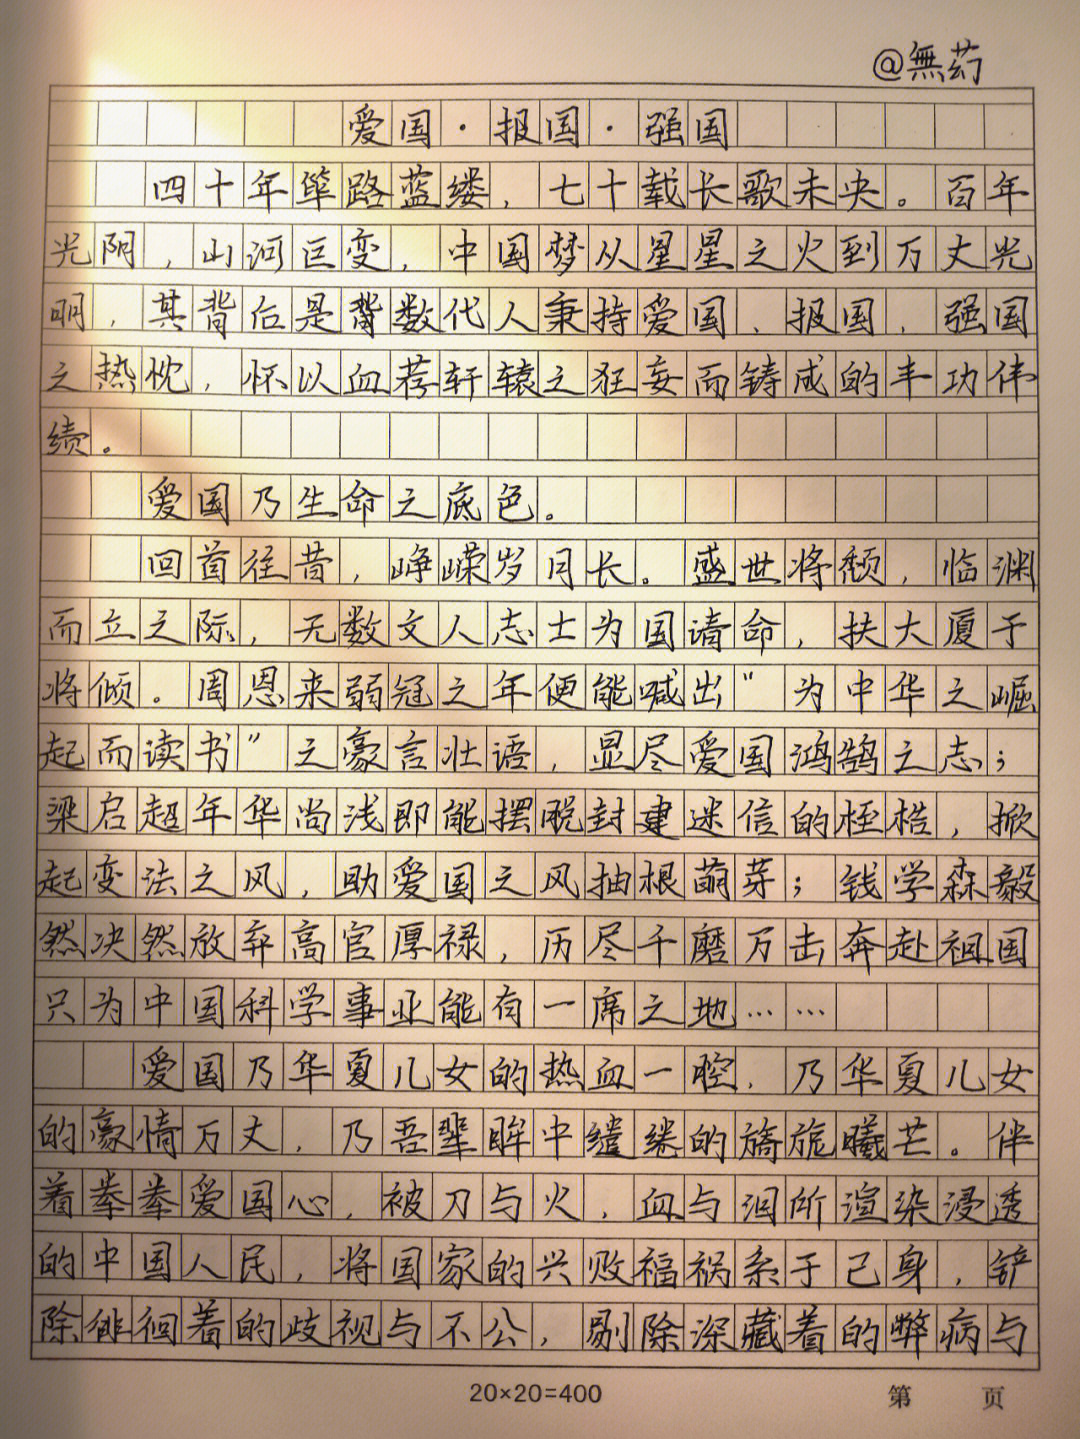 @無药
爱国·报国·强国
四十年筚路蓝缕，七十载长歌未央。百年
光阴，山河巨变，中国梦从星星之火到万丈光
明，其背后是数代人秉持爱国、报国、强国
之热忱，怀以血荐轩辕之狂妄而铸成的丰功伟
绩。
爱国乃生命之底色。
回首往昔，峥嵘岁月长。盛世将颓，临渊
而立之际，无数文人志士为国请命，扶大厦于
将倾。周恩来弱冠之年便能喊出“为中华之崛
起而读书”之豪言壮语，显尽爱国鸿鹄之志；
梁启超年华尚浅即能摆脱封建迷信的桎梏，掀
起变法之风，助爱国之风抽根萌芽；钱学森毅
然决然放弃高官厚禄，历尽千磨万击奔赴祖国
只为中国科学事业能有一席之地……
爱国乃华夏儿女的热血一腔，乃华夏儿女
的豪情万丈，乃吾辈眸中缱绻的旖旎曦芒。伴
着拳拳爱国心，被刀与火，血与泪所渲染浸透
的中国人民，将国家的兴败福祸系于己身，铲
除徘徊着的歧视与不公，剔除深藏着的弊病与
20×20=400
第 页